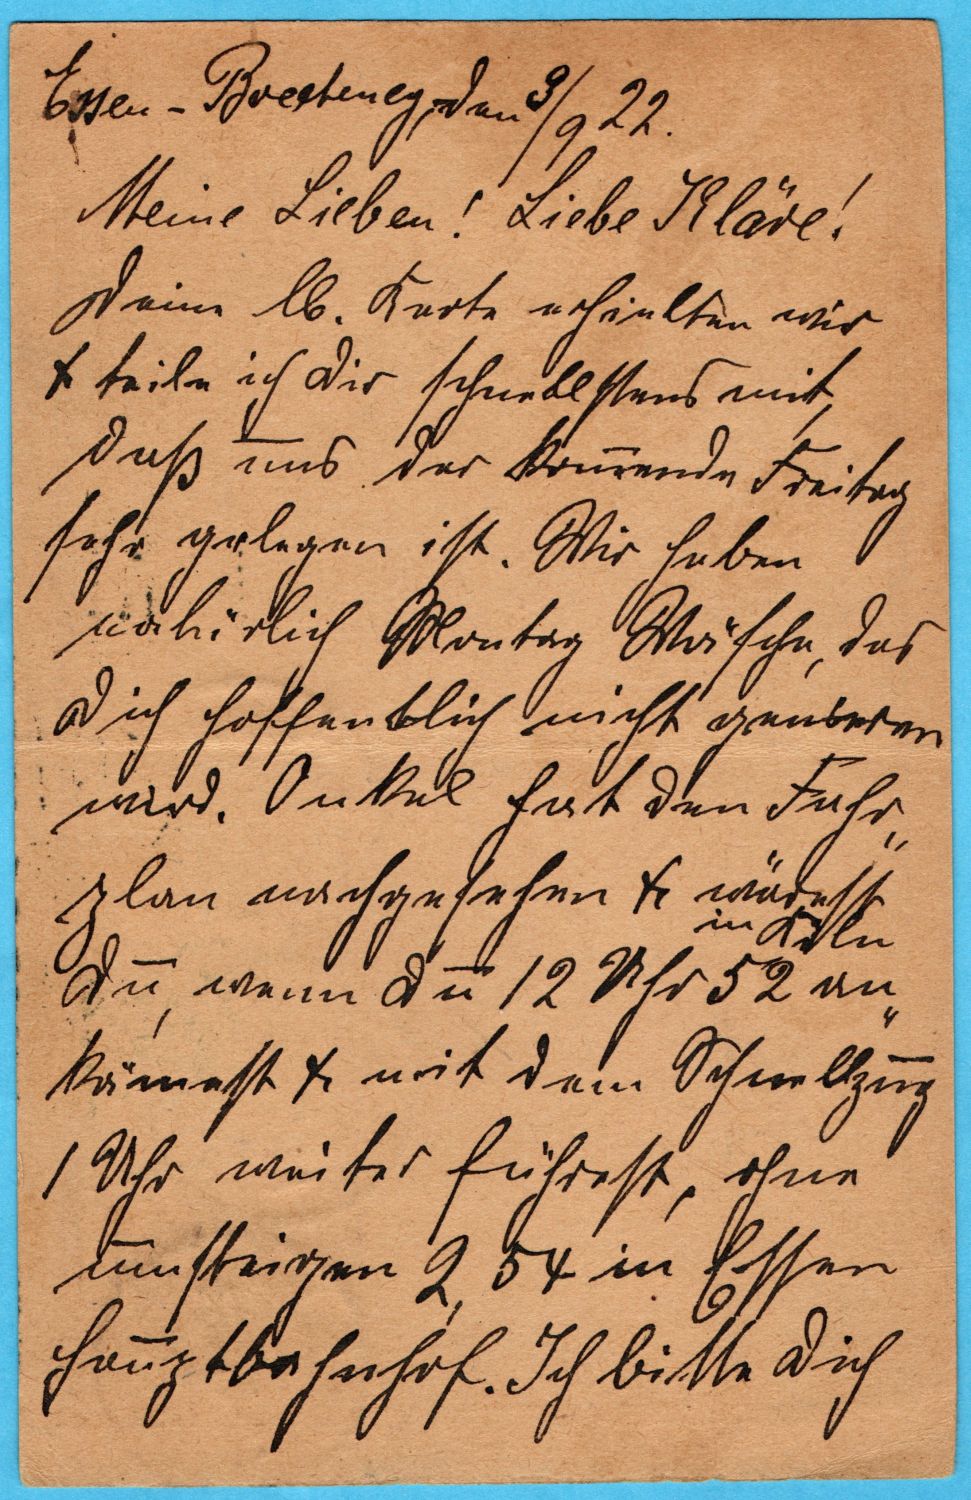 Essen - Bredeney, den 3/9 22.
Meine Lieben! Liebe Kläre!
Deine lb. Karte erhielten wir
& teile ich Dir schnellstens mit,
daß uns der kom̅ende Freitag
sehr gelegen ist. Wir haben
natürlich Montag Wäsche, das
Dich hoffentlich nicht genieren
wird. Onkel hat den Fahr„
plan nachgesehen & wärest
in Köln
Du, wenn Du 12 Uhr 52 an„
kämest & mit dem Schnellzug
1 Uhr weiter führest, ohne
umsteigen 2,54 in Essen
Hauptbahnhof. Ich bitte Dich